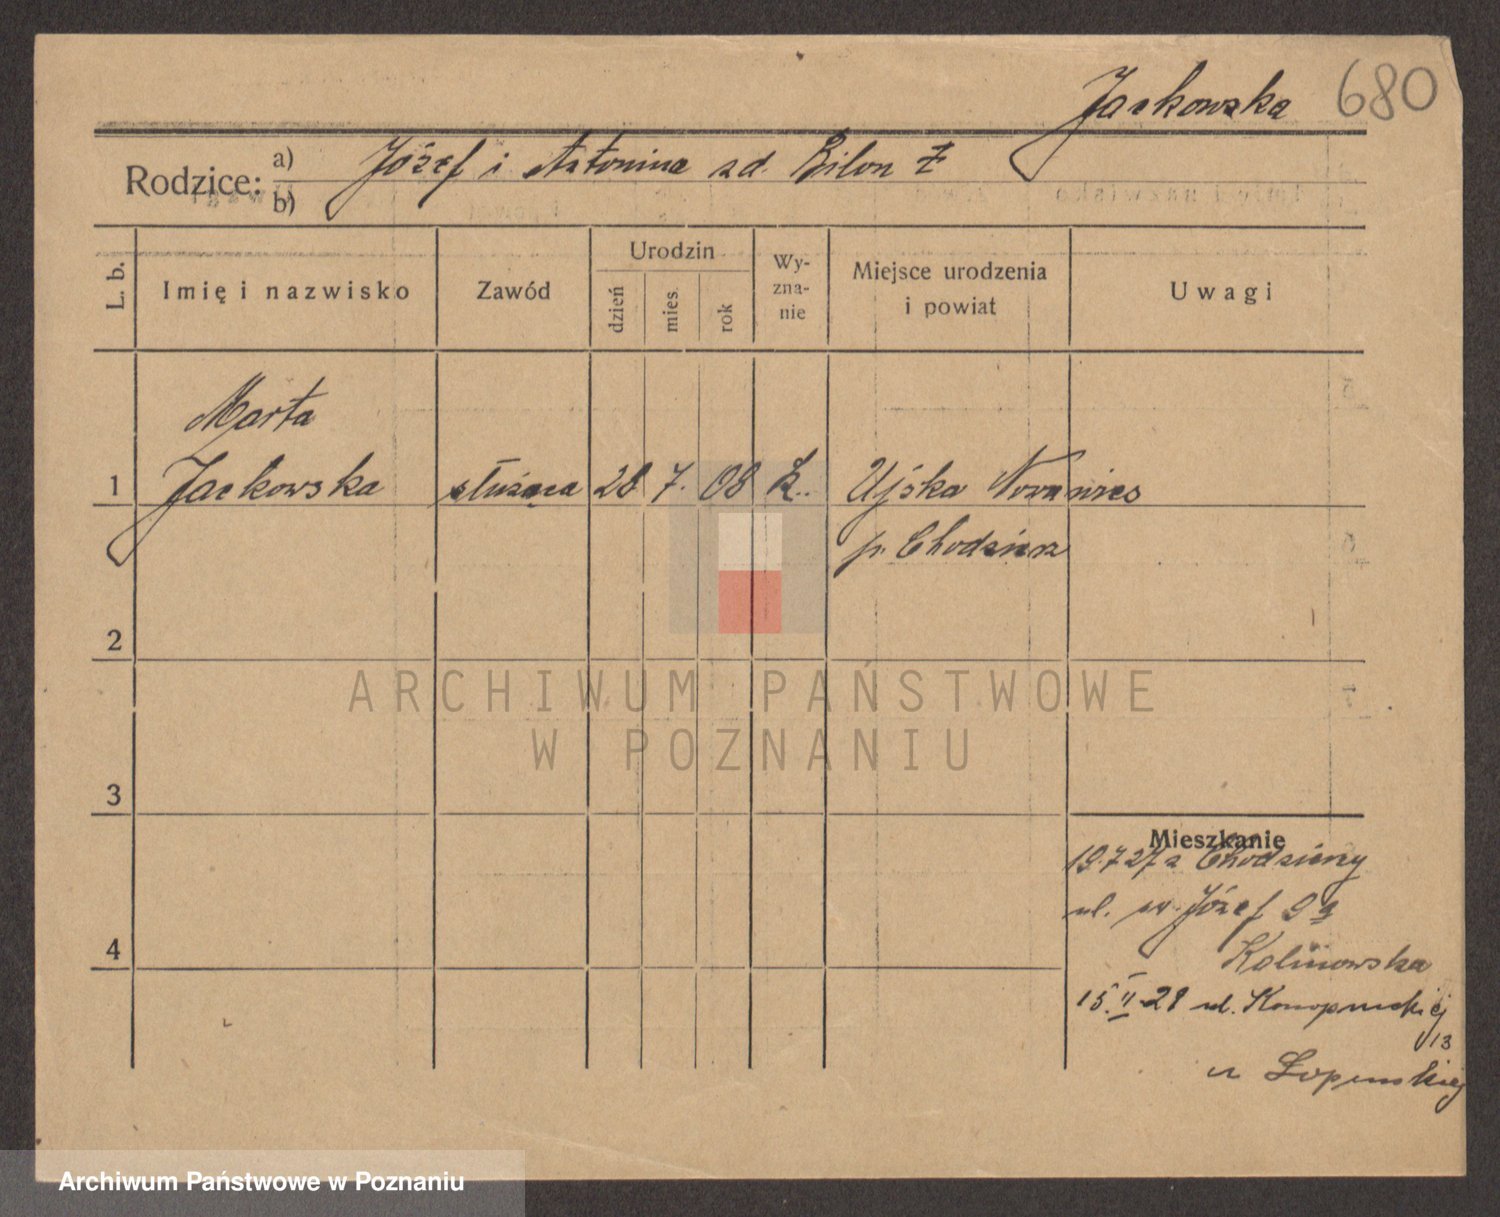 Jackowska 680
Rodzice: a) Józef i Antonina zd. Bilon
b)
L. b. Imię i nazwisko Zawód Urodzin dzień mies. rok Wy-zna-nie Miejsce urodzenia i powiat Uwagi
Marta
1 Jackowska służąca 28 7. 08 k. Ujska Nowawieś
p. Chodzież
2
ARCHIWUM PAŃSTWOWE
W POZNANIU
3
Mieszkanie
19.7 27 z Chodzieży
ul. św. Józef 9
4
Kolinowska
15. II 28 ul. Konopnickiej
13
u Łopinskiej
Archiwum Państwowe w Poznaniu